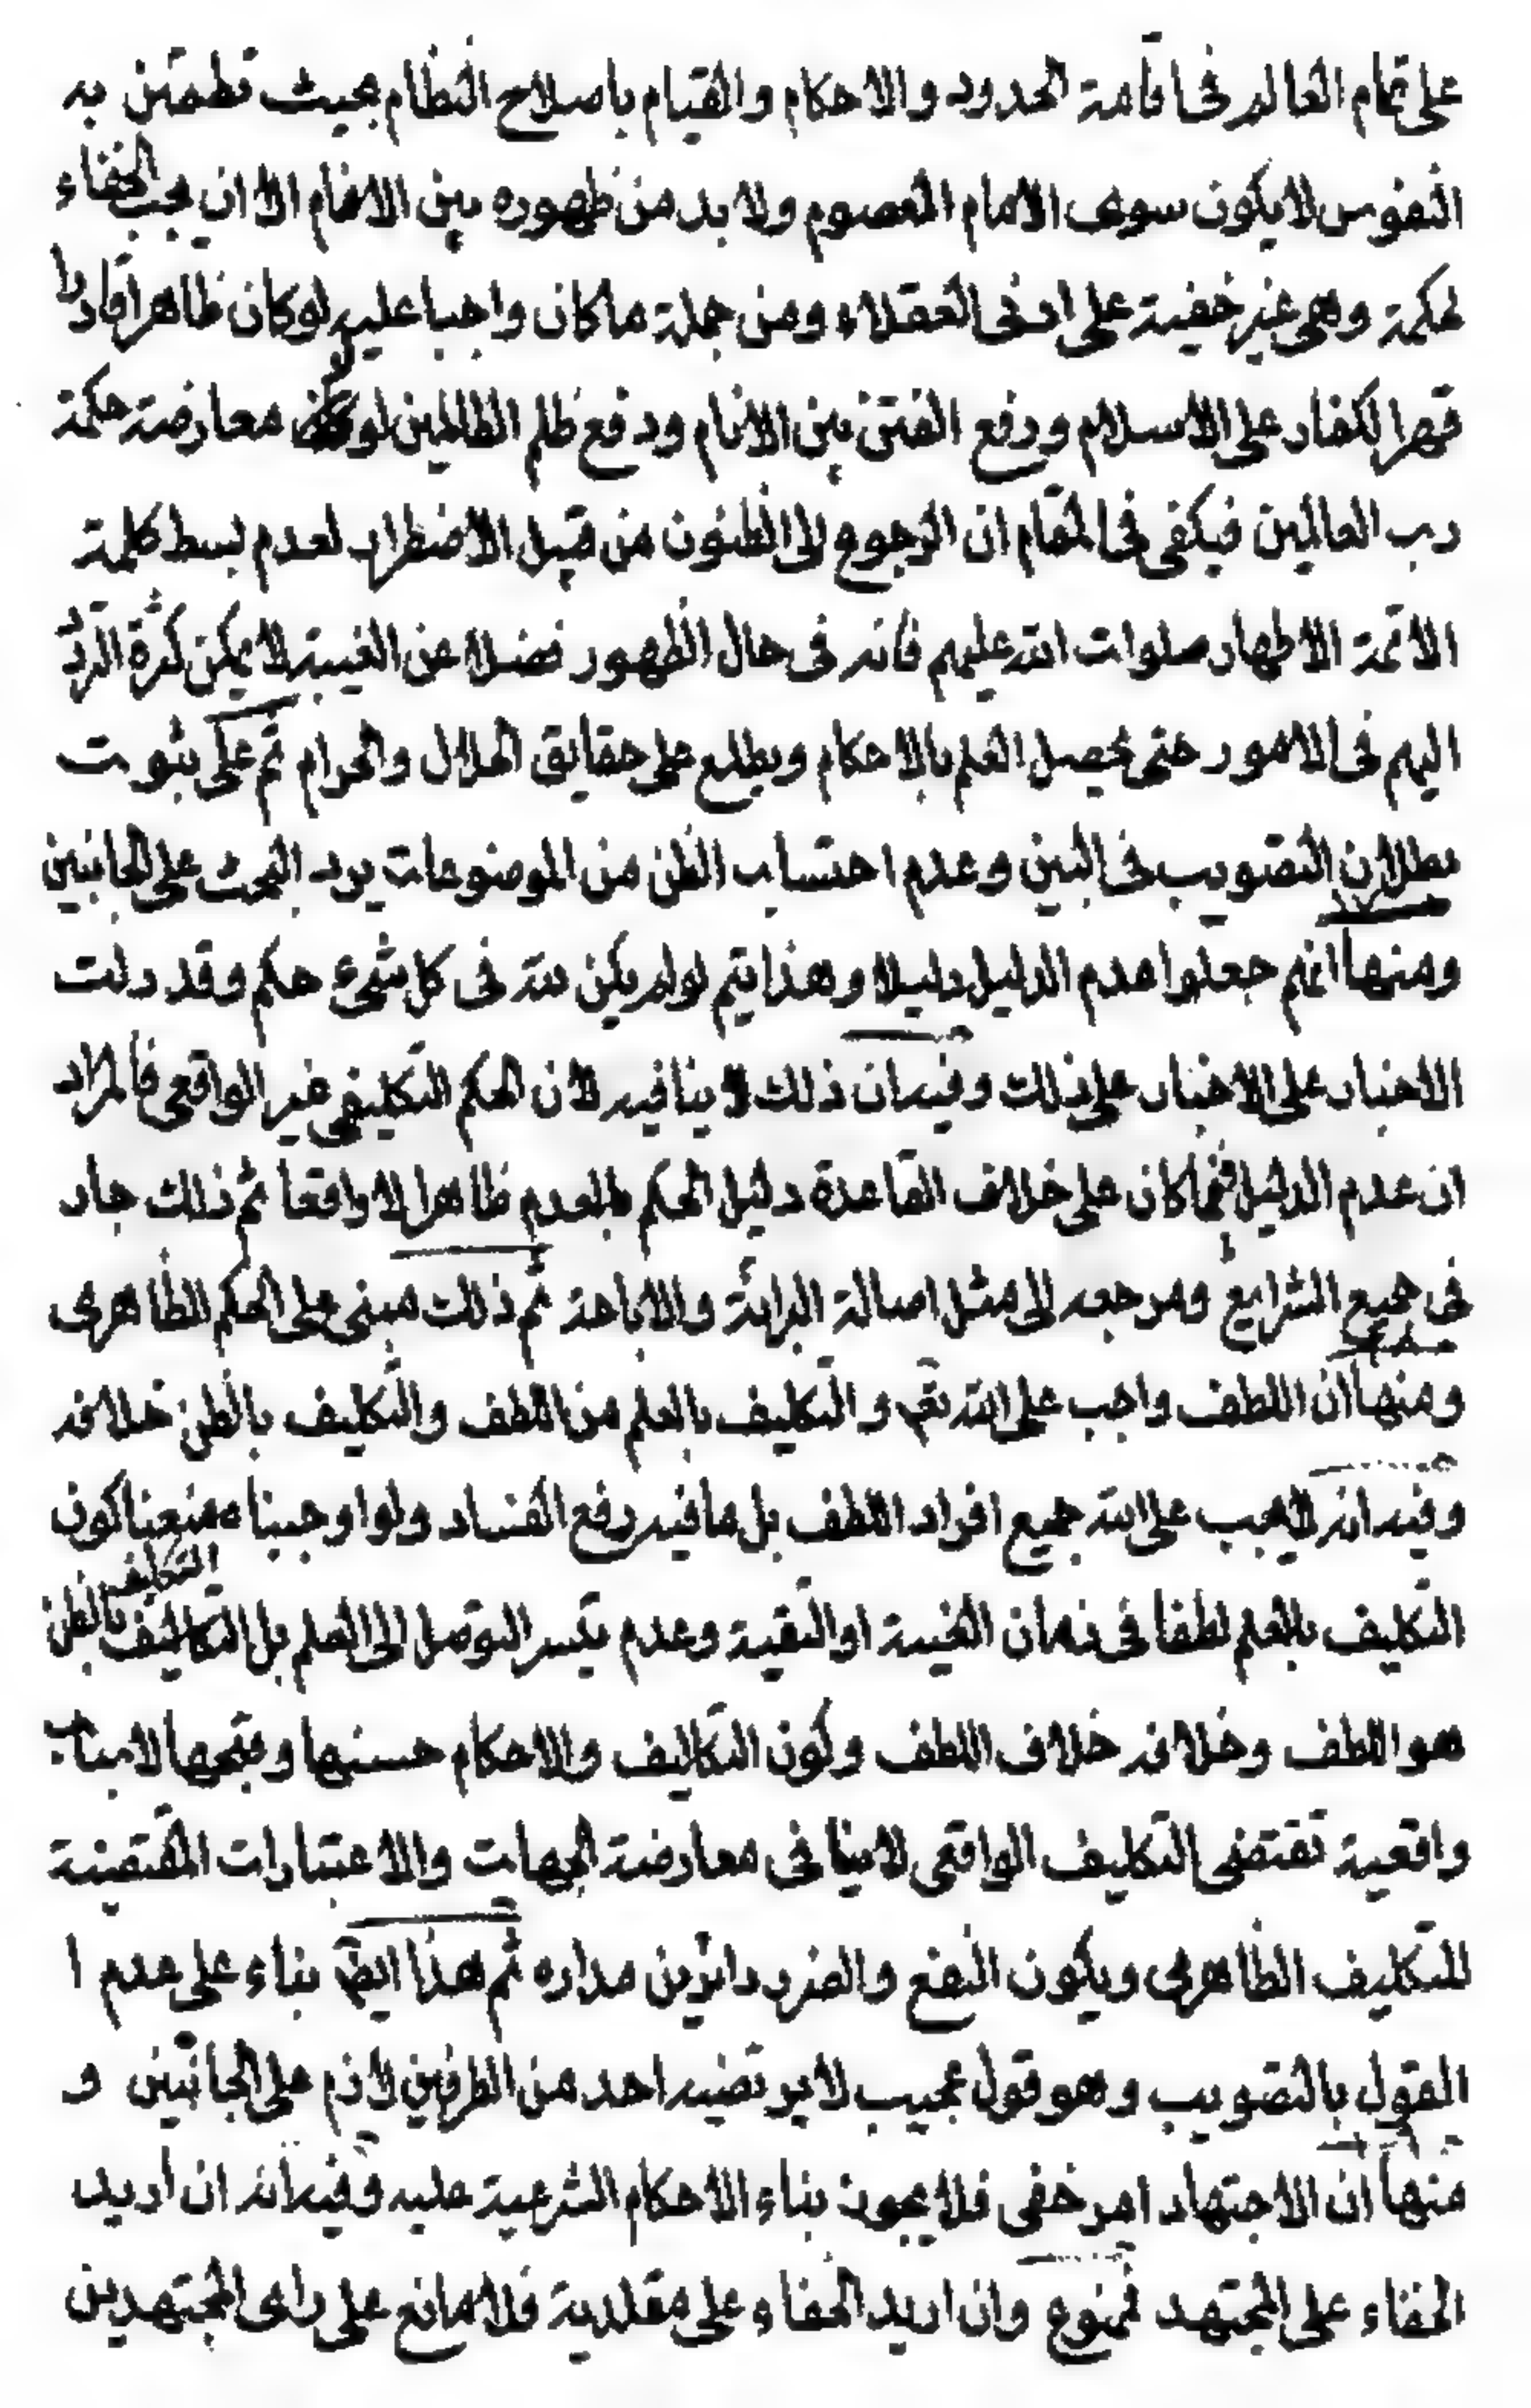 على تمام العالم فى اقامة الحدود والاحكام والقيام باصلاح النظام بحيث تطمئن به
النفوس لا يكون سوى الامام المعصوم ولا بد من ظهوره بين الانام الا ان يجب الخفاء
لحكمة وهى غير خفية على ادنى العقلاء ومن جملة ما كان واجبا عليه لو كان ظاهرا قادرا
قهر الكفار على الاسلام ورفع الفتن بين الانام ودفع ظلم الظالمين لو لا معارضة حكمة
رب العالمين فيكفى فى المقام ان الرجوع الى الظنون من قبيل الاضطرار لعدم بسط كلمة
الائمة الاطهار صلوات الله عليهم فانه فى حال الظهور فضلا عن الغيبة لا يمكن كثرة التردد
اليهم فى الامور حتى يحصل العلم بالاحكام ويطلع على حقايق الحلال والحرام ثم على ثبوت
بطلان التصويب فى البين وعدم احتساب الظن من الموضوعات يرد البحث على الجانبين
ومنها انهم جعلوا عدم الدليل دليلا وهذا يتم لو لم يكن لله فى كل شىء حكم وقد دلت
الاخبار على الاخبار على ذلك وفيه ان ذلك لا ينافيه لان الحكم التكليفى غير الواقعى فالمراد
ان عدم الدليل فيما كان على خلاف القاعدة دليل الحكم بالعدم ظاهرا لا واقعا ثم ذلك جار
فى جميع الشرايع ومرجعه الى مثل اصالة البرائة والاباحة ثم ذلك مبنى على الحكم الظاهرى
ومنها ان اللطف واجب على الله تعم والتكليف بالعلم من اللطف والتكليف بالظن خلافه
وفيه انه لا يجب على الله جميع افراد اللطف بل ما فيه رفع الفساد ولو اوجبناه منعنا كون
التكليف بالعلم لطفا فى زمان الغيبة او التقية وعدم تيسر التوصل الى العلم بل التكليف بالظن
هو اللطف وخلافه خلاف اللطف وكون التكاليف والاحكام حسنها وقبحها لاسباب
واقعية تقتضى التكليف الواقعى لا ينافى معارضة الجهات والاعتبارات المقتضية
للتكليف الظاهرى ويكون النفع والضرر دائرين مداره ثم هذا ايضا بناء على عدم ا
لقول بالتصويب وهو قول عجيب لا يرتضيه احد من الطرفين لازم على الجانبين و
منها ان الاجتهاد امر خفى فلا يجوز بناء الاحكام الشرعية عليه وفيه انه ان اريد
الخفاء على المجتهد فممنوع وان اريد الخفاء على مقلديه فلا مانع على راى المجتهدين